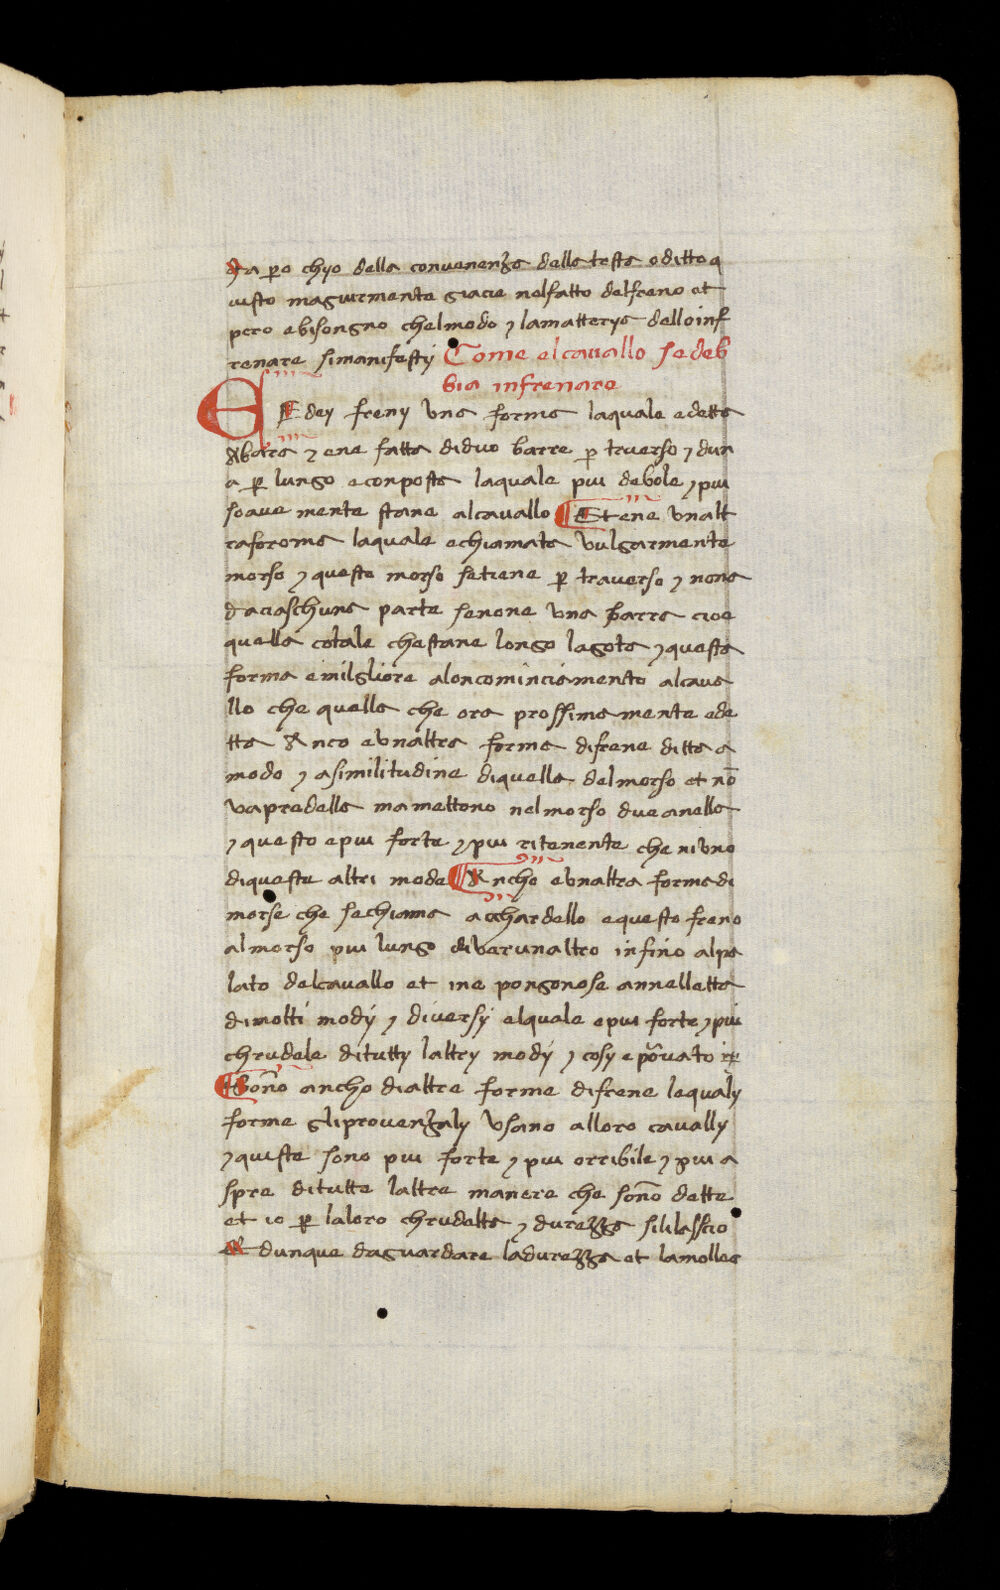 Ma pero chyo della convenenza della testa o ditto q
uisto magiurmente giacie nel fatto del freno et
pero e bisongno chel modo ⁊ la matterya dello inf
renare si manifesty Come el cauallo se deb
bia infrenare
E Edey freny vna forma laquale e detta
Abara ⁊ ene fatta di duo barre p traverso ⁊ dun
a p lungo e conposta laquale piu debole ⁊ piu
soave mente stane al cavallo Et ene vnalt
ra foroma laquale e chiamata vulgarmente
morso ⁊ questo morso setiene p traverso ⁊ nona
daciaschuna parte senone vna barra cioe
quella cotale che stane longo la gota ⁊ questa
forma e milgliore alo ncominciamento al caua
llo che quella che ora prossima mente e de
tta Anco e vnaltra forma di frene ditta a
modo ⁊ a similitudine di quella del morso et nō
va predella ma mettono nel morso due anella
⁊ questo e piu forte ⁊ piu ritenente che niuno
di queste altri mode Ancho e vnaltra forma di
morse che se chiama acchardello e questo freno
al morso piu lungo di verunaltro infino al pa
lato del cavallo et ine pongonose annelletta
di molti mody ⁊ diversy el quale e piu forte ⁊ piu
chrudele di tutty laltry mody ⁊ cosy e pōvato
Sono ancho di altre forme di frene le qualy
forme gli provenzaly vsano alloro cavally
⁊ quiste sono piu forte ⁊ piu orribile ⁊ piu a
spre di tutte laltre manere che sono dette
et io p la loro chrudelta ⁊ durezza sili lasscio
A dunque da guardare la durezza et la molles